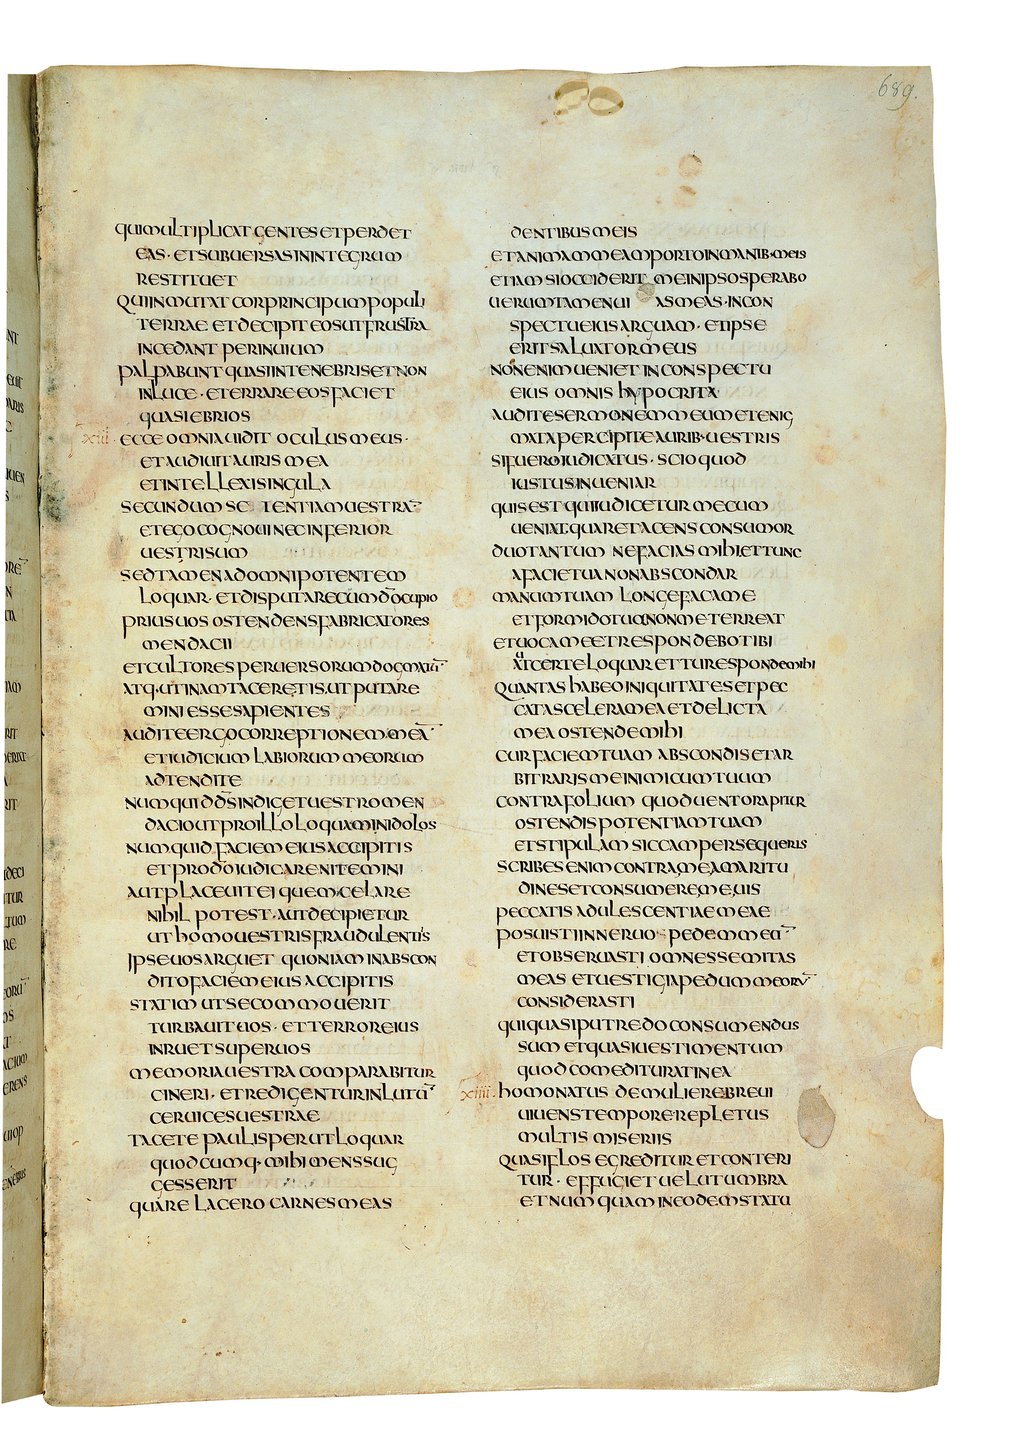 689.
QUI MULTIPLICAT GENTES ET PERDET
EAS · ET SUBUERSAS IN INTEGRUM
RESTITUET
QUI INMUTAT COR PRINCIPUM POPULI
TERRAE ET DECIPIT EOS UT FRUSTRA
INCEDANT PER INUIUM
PALPABUNT QUASI IN TENEBRIS ET NON
IN LUCE · ET ERRARE EOS FACIET
QUASI EBRIOS
xiii · ECCE OMNIA UIDIT OCULUS MEUS ·
ET AUDIUIT AURIS MEA
ET INTELLEXI SINGULA
SECUNDUM SC TENTIAM UESTRĀ
ET EGO COGNOUI NEC INFERIOR
UESTRI SUM
SED TAMEN AD OMNIPOTENTEM
LOQUAR · ET DISPUTARE CUM DŌ CUPIO
PRIUS UOS OSTENDENS FABRICATORES
MENDACII
ET CULTORES PERUERSORUM DOGMATŪ
ATQ · UTINAM TACERETIS · UT PUTARE
MINI ESSE SAPIENTES
AUDITE ERGO CORREPTIONEM MEĀ
ET IUDICIUM LABIORUM MEORUM
ADTENDITE
NUMQUID D̄S INDIGET UESTRO MEN
DACIO UT PRO ILLO LOQUAMINI DOLOS
NUMQUID FACIEM EIUS ACCIPITIS
ET PRO DŌ IUDICARE NITEMINI
AUT PLACEUIT EI QUEM CELARE
NIHIL POTEST · AUT DECIPIETUR
UT HOMO UESTRIS FRAUDULENTIS
IPSE UOS ARGUET QUONIAM IN ABSCON
DITO FACIEM EIUS ACCIPITIS
STATIM UT SE COMMOUERIT
TURBAUIT UOS · ET TERROR EIUS
INRUET SUPER UOS
MEMORIA UESTRA COMPARABITUR
CINERI · ET REDIGENTUR IN LUTŪ
CERUICES UESTRAE
TACETE PAULISPER UT LOQUAR
QUODCUMQ · MIHI MENS SUG
GESSERIT
QUARE LACERO CARNES MEAS
DENTIBUS MEIS
ET ANIMAM MEAM PORTO IN MANIB · MEIS
ETIAM SI OCCIDERIT ME IN IPSO SPERABO
UERUMTAMEN UI AS MEAS · IN CON
SPECTU EIUS ARGUAM · ET IPSE
ERIT SALUATOR MEUS
NON ENIM UENIET IN CONSPECTU
EIUS OMNIS HYPOCRITA
AUDITE SERMONEM MEUM ET ENIG
MATA PERCIPITE AURIB · UESTRIS
SI FUERO IUDICATUS · SCIO QUOD
IUSTUS INUENIAR
QUIS EST QUI IUDICETUR MECUM
UENIAT · QUARE TACENS CONSUMOR
DUO TANTUM NE FACIAS MIHI · ET TUNC
A FACIE TUA NON ABSCONDAR
MANUM TUAM LONGE FAC A ME
ET FORMIDO TUA NON ME TERREAT
ET UOCA ME ET RESPONDEBO TIBI
AUT CERTE LOQUAR ET TU RESPONDE MIHI
QUANTAS HABEO INIQUITATES ET PEC
CATA SCELERA MEA ET DELICTA
MEA OSTENDE MIHI
CUR FACIEM TUAM ABSCONDIS ET AR
BITRARIS ME INIMICUM TUUM
CONTRA FOLIUM QUOD UENTO RAPITUR
OSTENDIS POTENTIAM TUAM
ET STIPULAM SICCAM PERSEQUERIS
SCRIBES ENIM CONTRA ME AMARITU
DINES ET CONSUMERE ME UIS
PECCATIS ADULESCENTIAE MEAE
POSUISTI IN NERUO PEDEM MEŪ
ET OBSERUASTI OMNES SEMITAS
MEAS ET UESTIGIA PEDUM MEORŪ
CONSIDERASTI
QUI QUASI PUTREDO CONSUMENDUS
SUM ET QUASI UESTIMENTUM
QUOD COMEDITUR A TINEA
xiiii · HOMO NATUS DE MULIERE BREUI
UIUENS TEMPORE REPLETUS
MULTIS MISERIIS
QUASI FLOS EGREDITUR ET CONTERI
TUR · EFFUGIET UELUT UMBRA
ET NUMQUAM IN EODEM STATU